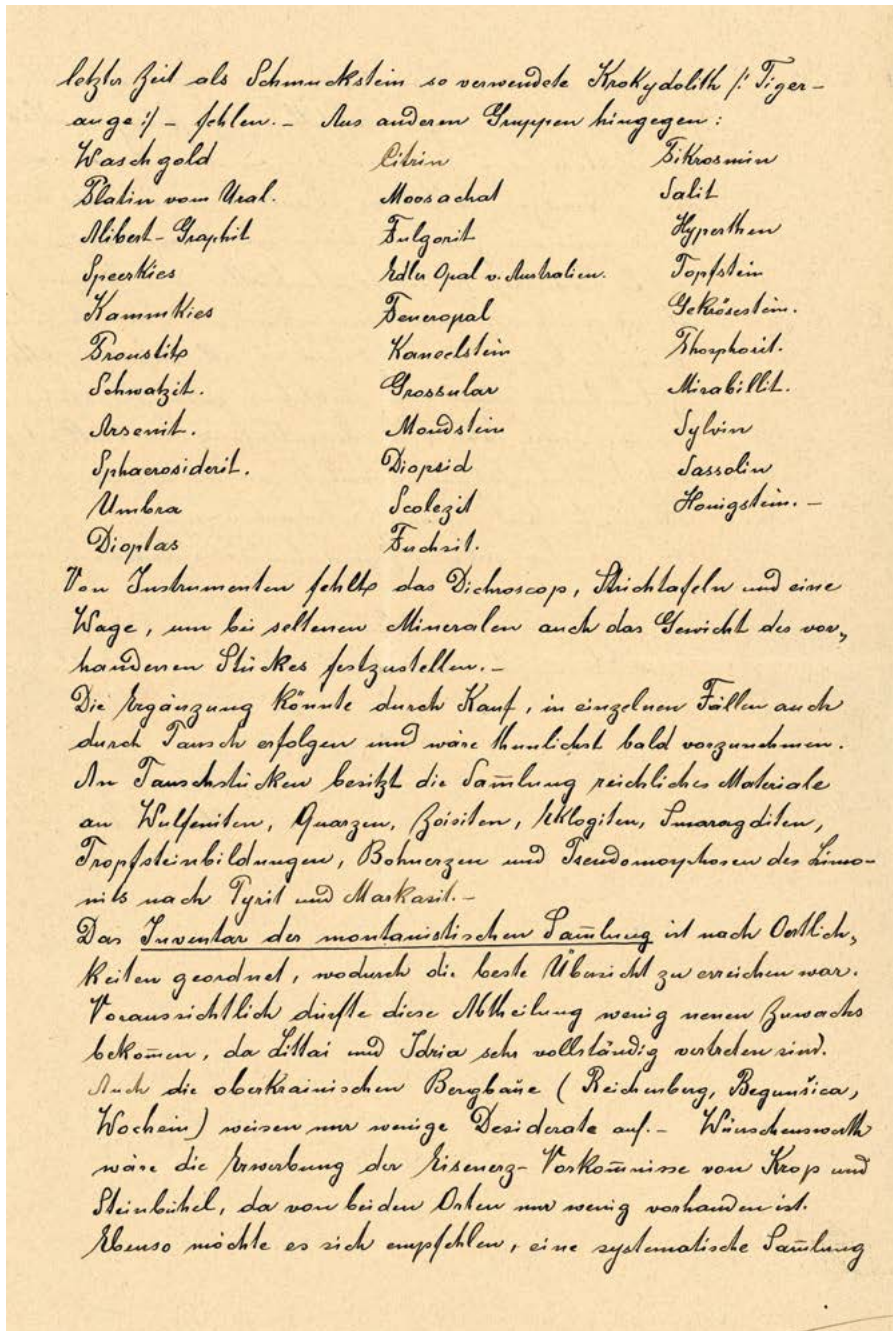 letzter Zeit als Schmuckstein so verwendete Krokydolith /: Tiger-
auge :/ – fehlen. – Aus anderen Gruppen hingegen:
Waschgold Citrin Pikrosmin
Platin vom Ural. Moosachat Salit
Alibert-Graphit Fulgorit Hypersthen
Speerkies Edler Opal v. Australien. Topfstein
Kammkies Feueropal Gekrösestein.
Proustit Kaneelstein Phosphorit.
Schwatzit. Grossular Mirabillit.
Arsenit. Mondstein Sylvin
Sphaerosiderit. Diopsid Sassolin
Umbra Scolezit Honigstein. –
Dioptas Fuchsit.
Von Instrumenten fehlt das Dichroscop, Strichtafeln und eine
Wage, um bei seltenen Mineralen auch das Gewicht des vor„
handenen Stückes festzustellen. –
Die Ergänzung könnte durch Kauf, in einzelnen Fällen auch
durch Tausch erfolgen und wäre thunlichst bald vorzunehmen.
An Tauschstücken besitzt die Sam̄lung reichliches Materiale
an Wulfeniten, Quarzen, Zoisiten, Eklogiten, Smaragditen,
Tropfsteinbildungen, Bohnerzen und Pseudomorphosen des Limo-
nits nach Pyrit und Markasit. –
Das Inventar der montanistischen Sam̄lung ist nach Oertlich„
keiten geordnet, wodurch die beste Übersicht zu erreichen war.
Voraussichtlich dürfte diese Abtheilung wenig neuen Zuwachs
bekom̄en, da Littai und Idria sehr vollständig vertreten sind.
Auch die oberkrainischen Bergbaue (Reichenberg, Begunšica,
Wochein) weisen nur wenige Desiderate auf. – Wünschenswerth
wäre die Erwerbung der Eisenerz-Vorkom̄nisse von Krop und
Steinbühel, da von beiden Orten nur wenig vorhanden ist.
Ebenso möchte es sich empfehlen, eine systematische Sam̄lung